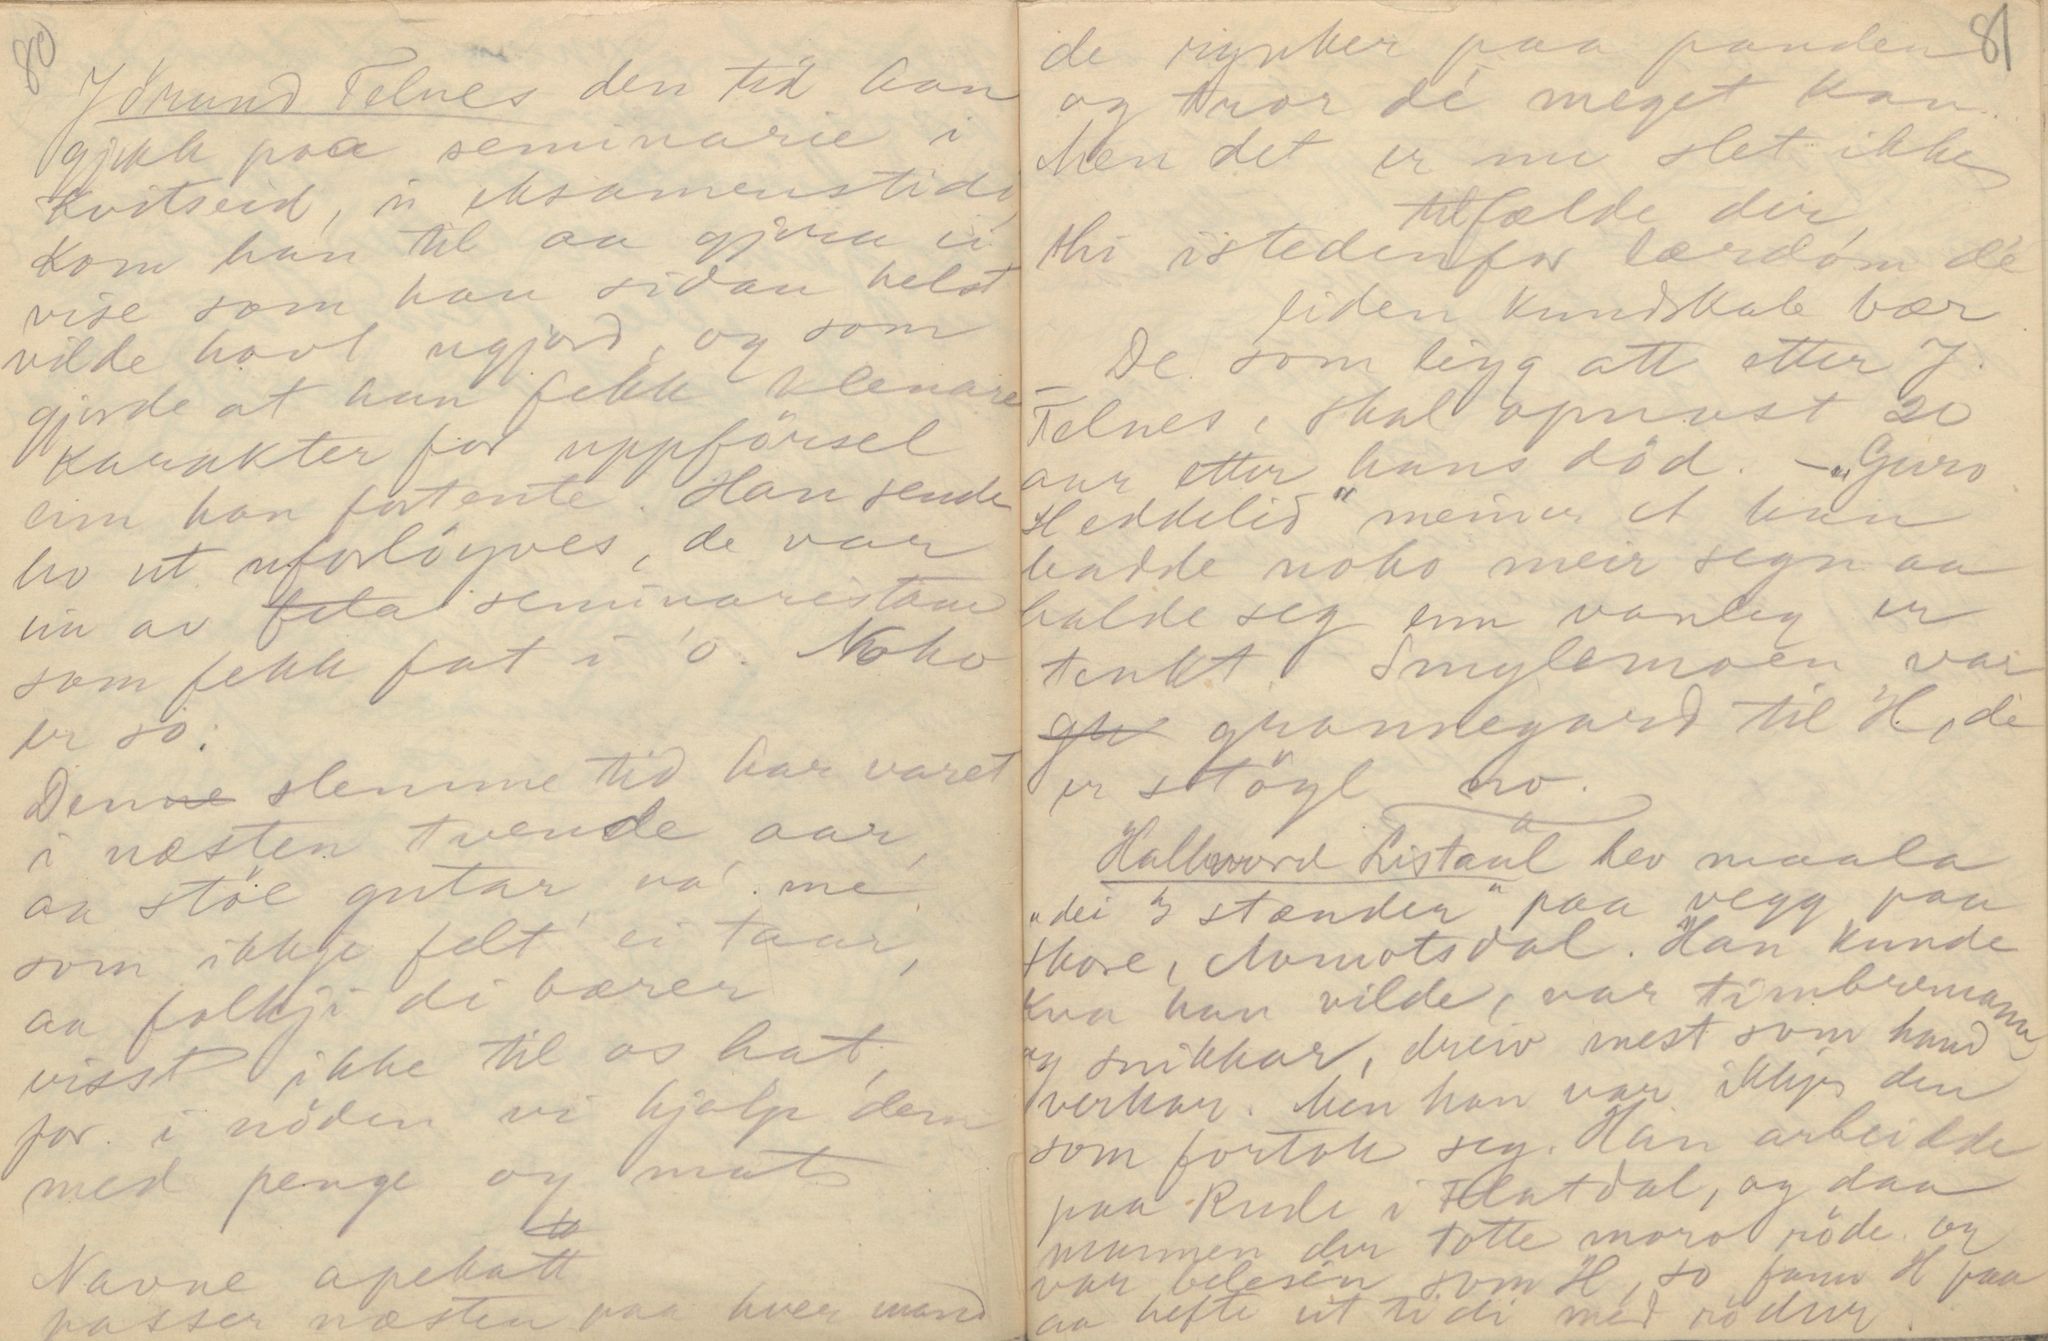 80
Jörund Telnes den tid han
gjekk paa seminarie i
Kvitseid, i eksamenstidi,
kom han til aa gjera ei
vise som han sidan helst
vilde havt ugjord, og som
gjorde at han fekk klenare
karakter for uppförsel
enn han fortente. Han sende
ho ut uforlöyves, de var
ein av seminaristane
som fekk fat i 'o. Noko
er so:
Denne slemme tid har varet
i næsten tvende aar,
aa stöe gutar, va' me
som ikkje felt' ei taar,
aa folkji di bærer
visst ikke til os hat,
for i nöden vi hjalp dem
med penge og mat
Navne apekatt
passer næsten paa hver mand
81
de rynker paa panden
og tror de' meget kan.
Men det er nu slet ikke
tilfælde der,
thi istedenfor lærdóm de'
liden kundskab bær
De som ligg att etter J.
Telnes, skal opnast 20
aar etter hans död. – "Guro
Heddelid" meiner et han
hadde noko meir segn aa
halde seg enn vanleg er
tenkt. Smylemoen var
grannegard til H, de
er stögl no.
Hallvord Listaul hev maala
"dei 3 stænder" paa vegg paa
Skore, Aamotsdal. Han kunde
kva han vilde, var timbremann
og snikkar, dreiv mest som hand
verkar. Men han var ikkje den
som fortok seg. Han arbeidde
paa Rudi i Flatdal, og daa
mannen der totte moro röde og
var belesen som H, so fann H paa
aa hefte ut tidi med rödur.